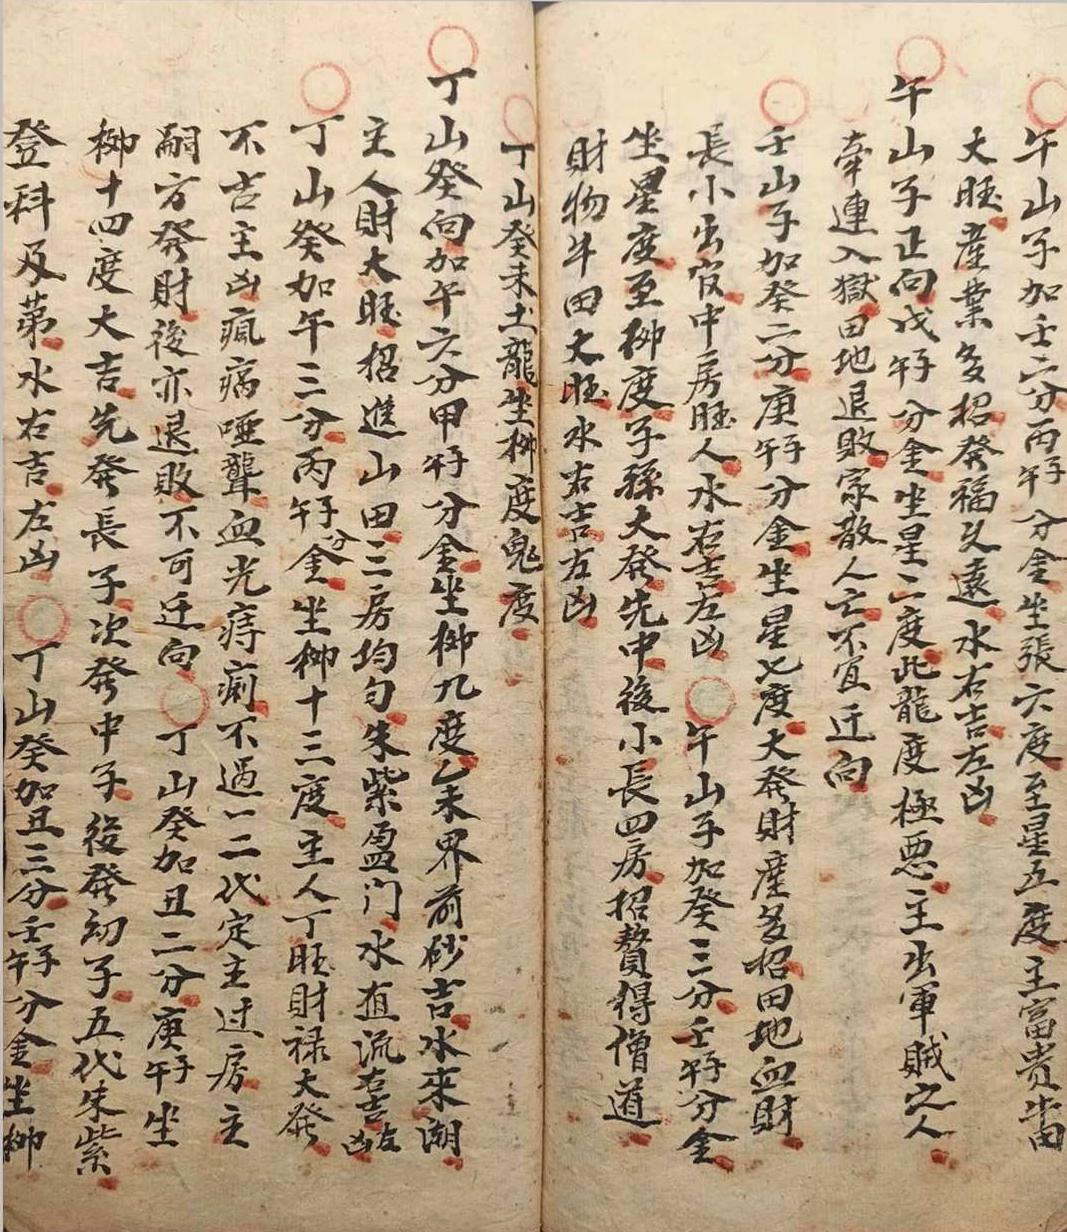 午山子加壬二分丙午子分金坐張六度至星五度主富貴牛田
大旺產業多招發福久遠水右吉左凶
午山子正向戊午子分金坐星二度此龍度極惡主出軍賊之人
牽連入獄田地退敗家散人亡不宜迁向
壬山子加癸二分庚午子分金坐星七度大發財產多招田地血財
長小出官中房旺人水右吉左凶 午山子加癸三分壬午子分金
坐星度至柳度子孫大發先中後小長四房招贅得僧道
財物牛田大旺水右吉左凶
丁山癸未土龍坐柳度鬼度
丁山癸向加午六分甲午子分金坐柳九度乙未界前砂吉水來潮
主人財大旺招進山田二房均勻朱紫盈门水直流右吉左凶
丁山癸加午三分丙午子分金坐柳十三度主人丁旺財禄大發
不吉主凶瘋病啞聾血光痔痢不過一二代定主过房主
嗣方發財後亦退敗不可迁向 丁山癸加丑二分庚午子坐
柳十四度大吉先發長子次發中子後發幼子五代朱紫
登科及第水右吉左凶 丁山癸加丑三分壬午子分金坐柳